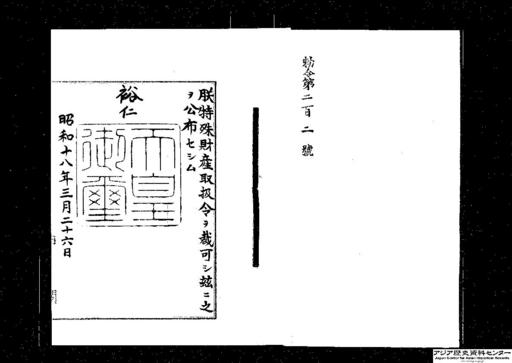 勅令第二百二號
朕特殊財産取扱令ヲ裁可シ玆ニ之
ヲ公布セシム
裕仁
天皇
御璽
昭和十八年三月二十六日
アジア歴史資料センター
Japan Center for Asian Historical Records